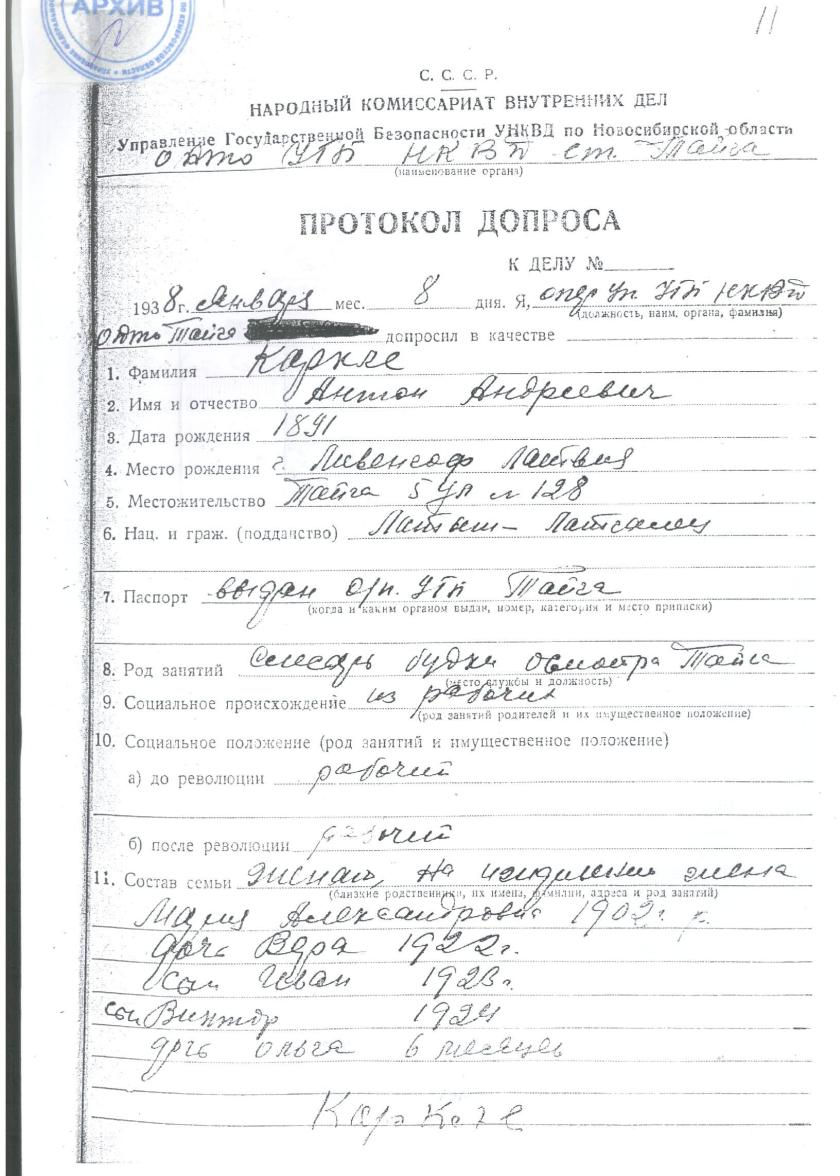 АРХИВ
11
С. С. С. Р.
НАРОДНЫЙ КОМИССАРИАТ ВНУТРЕННИХ ДЕЛ
Управление Государственной Безопасности УНКВД по Новосибирской области
УГБ НКВД ст. Тайга
(наименование органа)
ПРОТОКОЛ ДОПРОСА
К ДЕЛУ №
1938 г. января мес. 8 дня. Я, опер уп. УГБ НКВД
(должность, наим. органа, фамилия)
Тайга допросил в качестве
1. Фамилия Каркле
2. Имя и отчество Антон Андреевич
3. Дата рождения 1891
4. Место рождения г. Ливенгоф Латвия
5. Местожительство Тайга 5 ул № 128
6. Нац. и граж. (подданство) Латыш —
7. Паспорт выдан УГБ Тайга
(когда и каким органом выдан, номер, категория и место приписки)
8. Род занятий слесарь будки осмотра Тайга
(место службы и должность)
9. Социальное происхождение из рабочих
(род занятий родителей и их имущественное положение)
10. Социальное положение (род занятий и имущественное положение)
а) до революции рабочий
б) после революции рабочий
11. Состав семьи женат, на иждивении жена
(близкие родственники, их имена, фамилии, адреса и род занятий)
Мария Александровна 1902 г. р.
дочь Вера 1922 г.
сын Иван 1923 г.
сын Виктор 1924
дочь Ольга 6 месяцев
Каркле